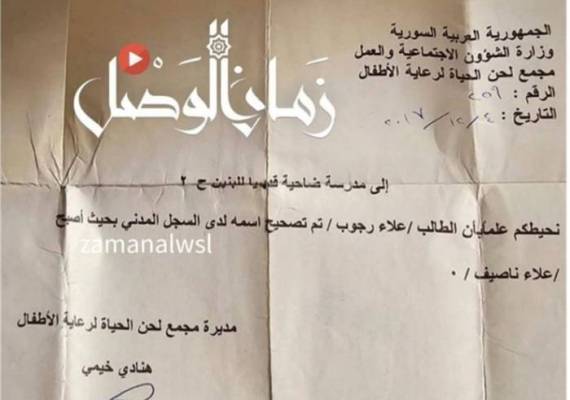 الجمهورية العربية السورية
وزارة الشؤون الاجتماعية والعمل
مجمع لحن الحياة لرعاية الأطفال
الرقم : ٢٥٩
التاريخ : ٢٠١٧/١٢/٤
زمان الوصل
إلى مدرسة ضاحية قدسيا للبنين ح ٢
نحيطكم علما بأن الطالب /علاء رجوب / تم تصحيح اسمه لدى السجل المدني بحيث أصبح
zamanalwsl
/علاء ناصيف / ٠
مديرة مجمع لحن الحياة لرعاية الأطفال
هنادي خيمي